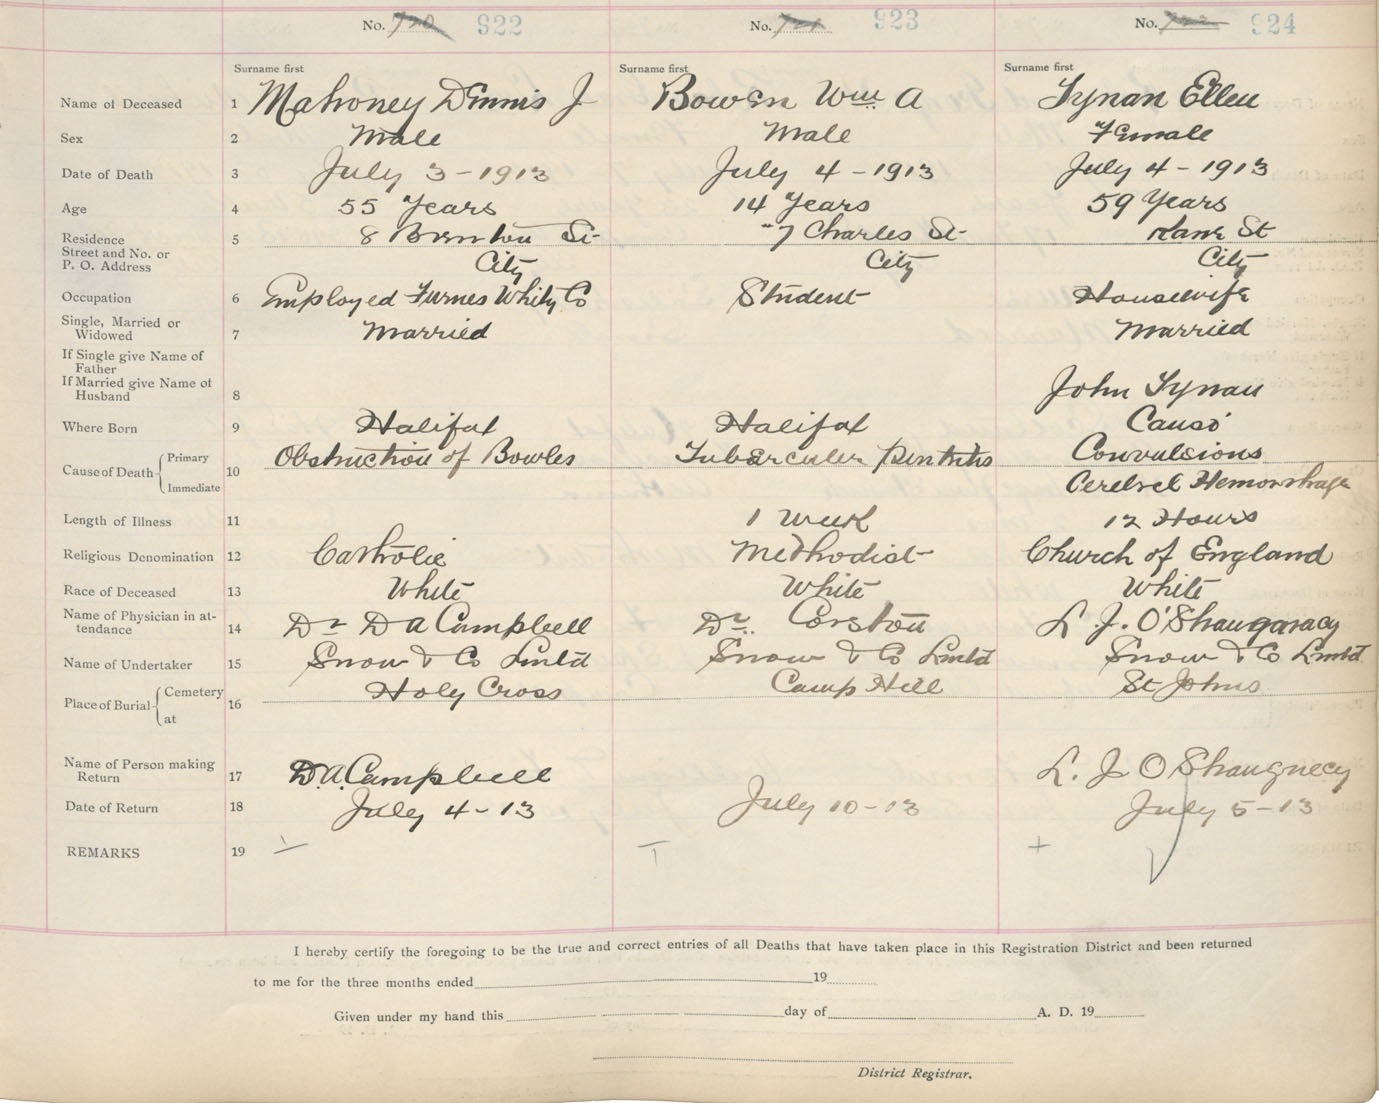 No. 720 922 No. 721 923 No. 722 924
Surname first Surname first Surname first
Name of Deceased 1 Mahoney Dennis J Bowen Wm A Tynan Ellen
Sex 2 Male Male Female
Date of Death 3 July 3 - 1913 July 4 - 1913 July 4 - 1913
Age 4 55 Years 14 Years 59 Years
Residence 5 8 St 7 Charles St Kane St
Street and No. or
P. O. Address City City City
Occupation 6 Employed Furnes Whity Co Student Housewife
Single, Married or
Widowed 7 Married Married
If Single give Name of
Father
If Married give Name of
Husband 8 John Tynan
Where Born 9 Halifax Halifax Canso
Cause of Death Primary 10 Obstruction of Bowles Tubercular Convulsions
Immediate Cerebrel Hemorrhage
Length of Illness 11 1 Week 12 Hours
Religious Denomination 12 Catholic Methodist Church of England
Race of Deceased 13 White White White
Name of Physician in at-
tendance 14 Dr D A Campbell Dr Corston L. J. O'Shaugnacy
Name of Undertaker 15 Snow & Co Lmtd Snow & Co Lmtd Snow & Co Lmtd
Place of Burial Cemetery 16 Holy Cross Camp Hill St Johns
at
Name of Person making
Return 17 D.A. Campbell L. J O Shaugnecy
Date of Return 18 July 4 - 13 July 10 - 13 July 5 - 13
REMARKS 19
I hereby certify the foregoing to be the true and correct entries of all Deaths that have taken place in this Registration District and been returned
to me for the three months ended 19
Given under my hand this day of A. D. 19
District Registrar.